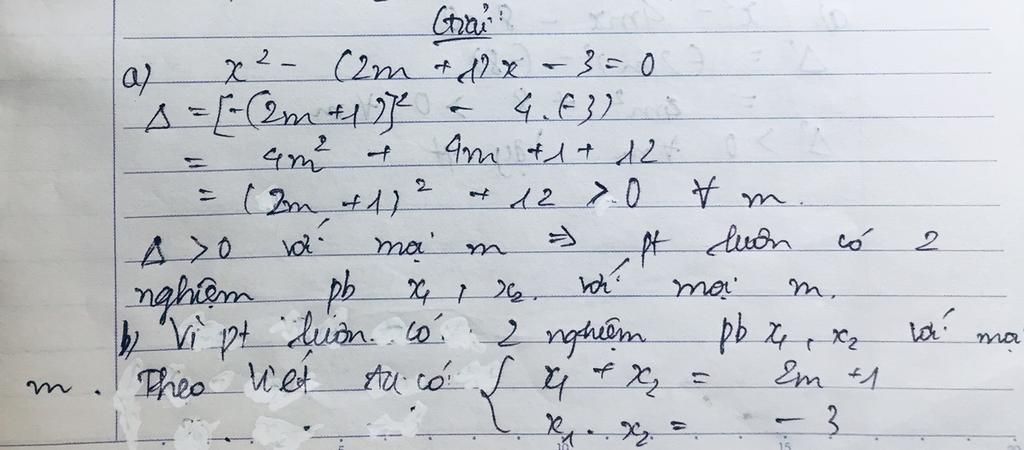 Giải:
a) x² - (2m + 1)x - 3 = 0
Δ = [-(2m+1)]² - 4.(-3)
= 4m² + 4m + 1 + 12
= (2m + 1)² + 12 > 0 ∀ m.
Δ > 0 với mọi m => pt luôn có 2
nghiệm pb x₁, x₂. với mọi m.
b) Vì pt luôn có 2 nghiệm pb x₁, x₂ với mọi
m. Theo Viét ta có: { x₁ + x₂ = 2m + 1
x₁ . x₂ = - 3